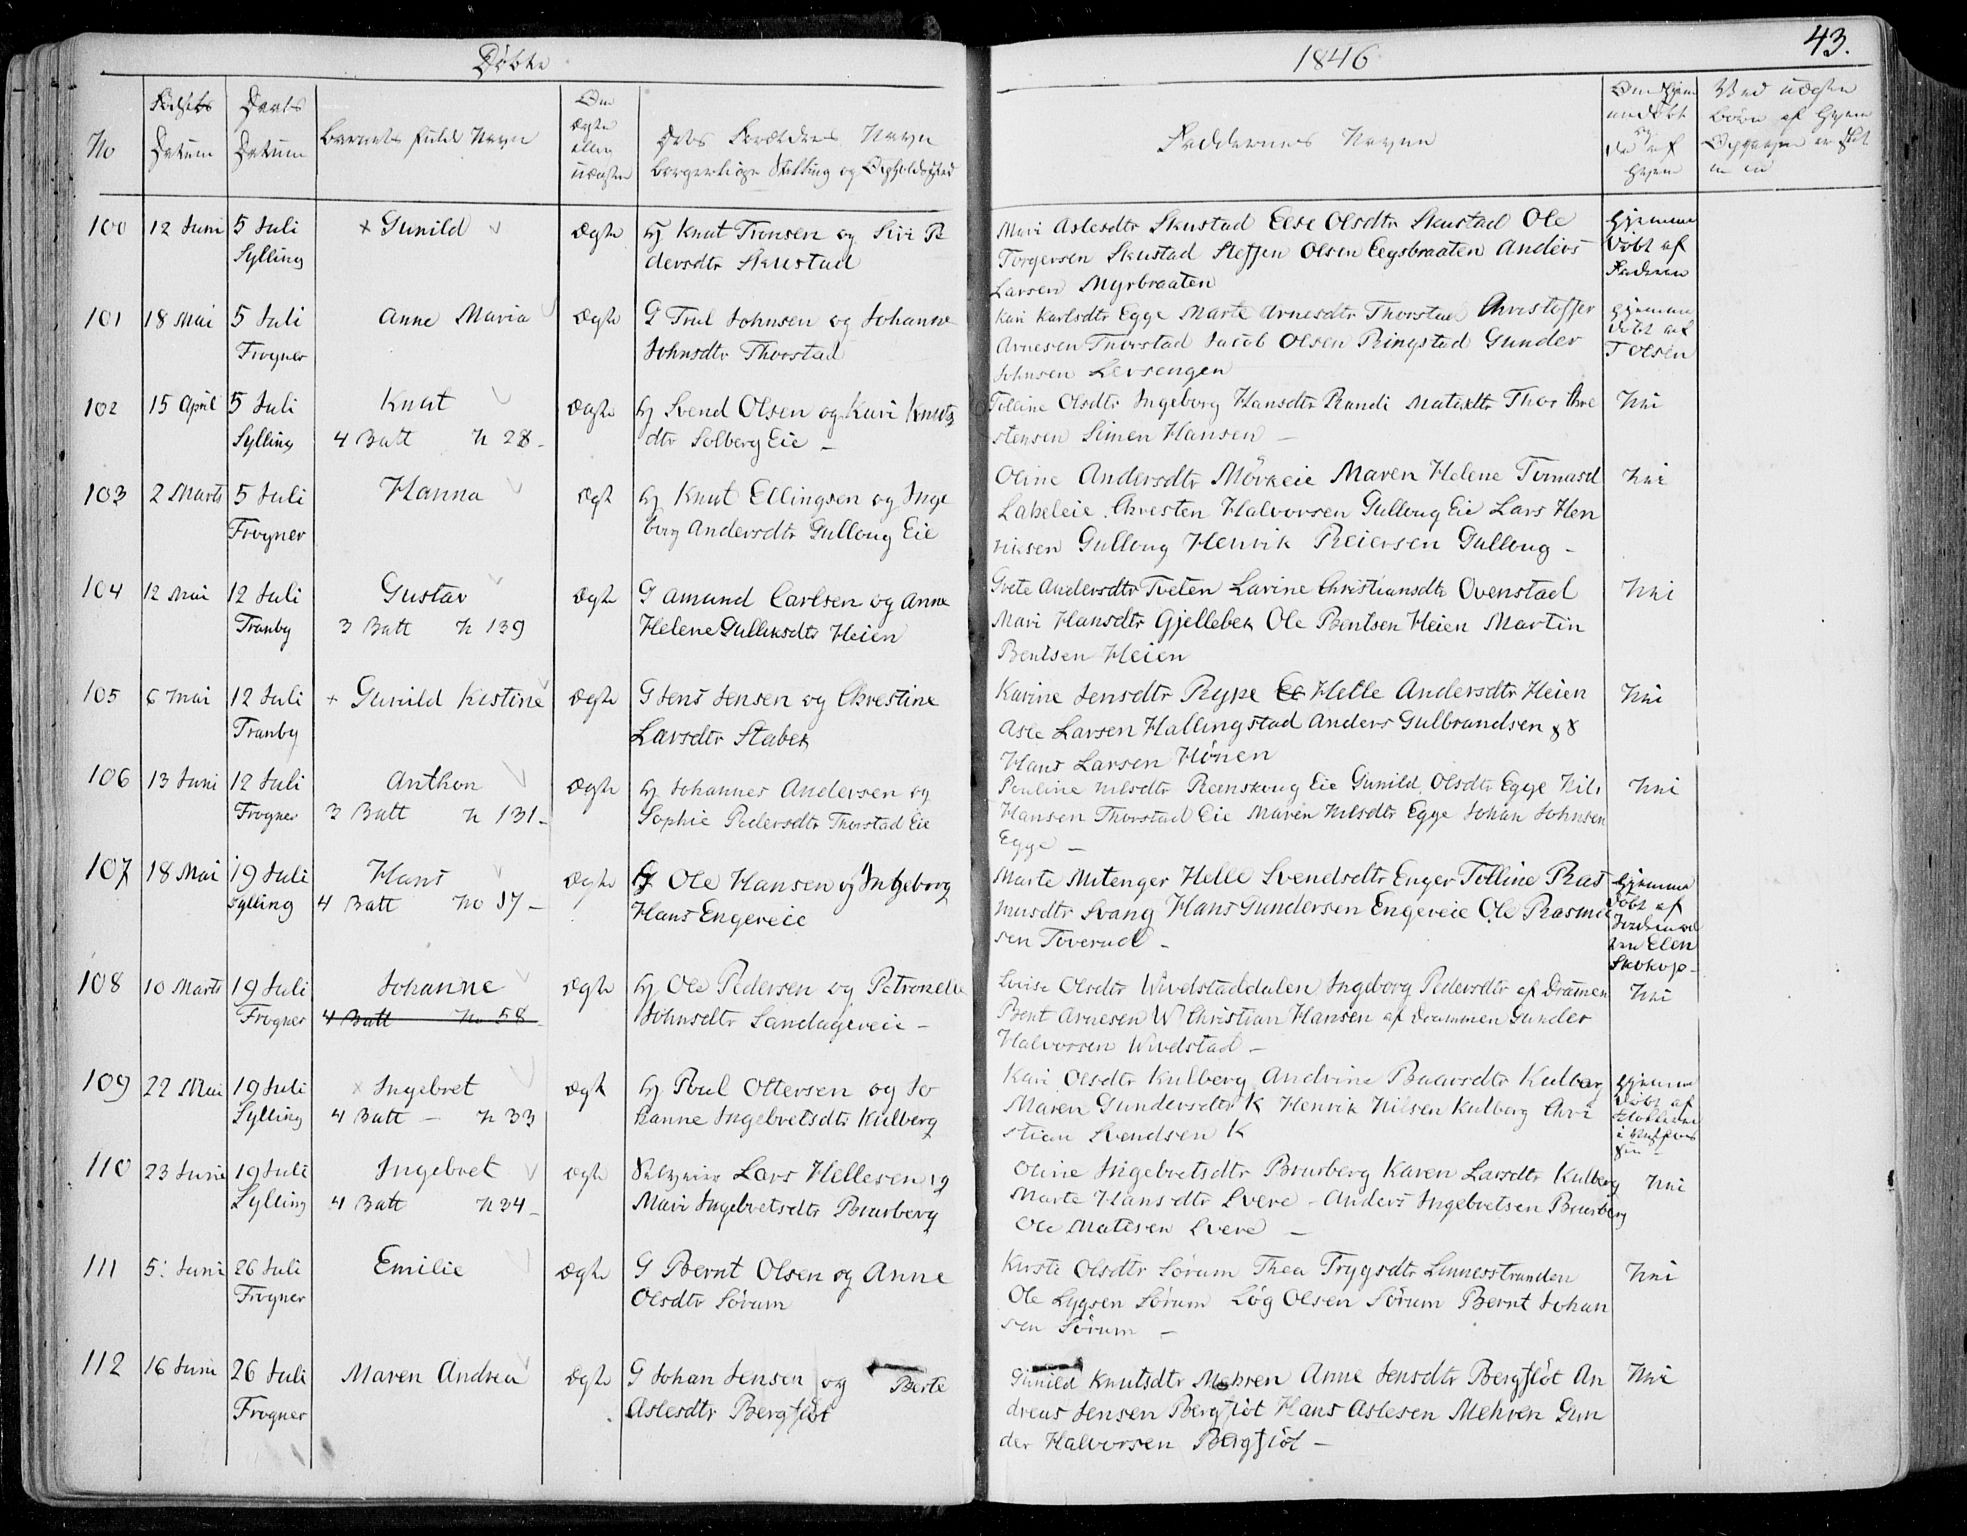 Døbte 1846 43.
No
Fødsels Datum
Daabs Datum
Barnets fulde Navn
Om ægte eller uægte
Dets Forældres Navn borgerlige Stilling og Opholdssted
Faddernes Navne
100 12 Juni 5 Juli + Gunild Ægte Knut Tronsen og Siri Pe Mari Aslesdtr Skustad Else Olsdtr Skustad Ole Hjemme
Sylling dersdtr Skustad Torgersen Skustad Steffen Olsen Eegsbraaten Anders døbt af
Larsen Myrbraaten Faderen
101 18 Mai 5 Juli Anne Maria Ægte G Truls Johnsen og Johanne Kari Karlsdtr Egge Marte Arnesdtr Thorstad Christoffer Hjemme
Frogner Johnsdtr Thorstad Arnesen Thorstad Jacob Olsen Ringstad Gunder døbt af
Johnsen Lersengen T Olsen
102 15 April 5 Juli Knut Ægte Svend Olsen og Kari Knuts Olsdtr Ingeborg Hansdtr Randi Matisdtr Thor Chre Nei
Sylling 4 Batt N 28 - dtr Solberg Eie - stensen Simen Hansen -
103 2 Marts 5 Juli Hanna Ægt Knut Ellingsen og Inge Oline Andersdtr Mörkeie Maren Helene Tomasd Nei
Frogner borg Andersdtr Gulloug Eie Lakeleie Chresten Halvorsen Gulloug Eie Lars Hen
riksen Gulloug Henrik Reiersen Gulloug -
104 12 Mai 12 Juli Gustav Ægte G Amund Carlsen og Anne Grete Andersdtr Tveten Larine Christiansdtr Ovenstad Nei
Tranby 3 Batt N 139 Helene Gulliksdtr Heien Mari Hansdtr Gjellebek Ole Bentsen Heien Martin
Bentsen Heien
105 6 Mai 12 Juli + Gunild Kistine Ægte G Jens Jensen og Christine Karine Jensdtr Rype Helle Andersdtr Heien Nei
Tranby Larsdtr Stabek Asle Larsen Hallingstad Anders Gulbrandsen
Hans Larsen Hönen
106 13 Juni 12 Juli Anthon Ægte Johannes Andersen og Pauline Nilsdtr Ramskoug Eie Gunild Olsdtr Egge Nils Nei
Frogner 3 Batt N 131 - Sophie Pedersdtr Thorstad Eie Hansen Thorstad Eie Maren Nilsdtr Egge Johan Johnsen
Egge -
107 18 Mai 19 Juli Hans Ægte Ole Hansen og Ingeborg Marte Mitenger Helle Svendsdtr Enger Tolline Ras Hjemme
Sylling 4 Batt No 37 - Hans Engereie musdtr Svang Hans Gundersen Engereie Ole Rasmu døbt af
sen Toverud - Ellen
108 10 Marts 19 Juli Johanne Ægte Ole Pedersen og Petronelle Lovise Olsdtr Wivelstaddalen Ingeborg Pedersdtr af Dramen Nei
Frogner 4 Batt No 58 Johnsdtr Sandagereie - Bent Arnesen W Christian Hansen af Drammen Gunder
Halvorsen Wivelstad -
109 22 Mai 19 Juli × Ingebret Ægt Poul Ottersen og Jo Kari Olsdtr Kulberg Andrine Paarsdtr Kulberg Hjemme
Sylling 4 Batt - N 33 hanne Ingebretsdtr Kulberg Maren Gundersdtr K Henrik Nilsen Kulberg Chri døbt af
stian Svendsen K
110 23 Juni 19 Juli Ingebret Ægte Lars Hellesen og Oline Ingebretsdtr Brurberg Karen Larsdtr Kulberg Nei
Sylling 4 Batt N 34 - Mari Ingebretsdtr Brurberg Marte Hansdtr Lvere - Anders Ingebretsen Brurberg
Ole Matisen Lvere -
111 5. Juni 26 Juli Emilie Ægte G Bernt Olsen og Anne Kirste Olsdtr Sörum Thea Trygsdtr Linnesstranden Nei
Frogner Olsdtr Sörum Ole Lygsen Sörum Lög Olsen Sörum Bernt Johan
sen Sörum -
112 16 Juni 26 Juli Maren Andrea Ægte G Johan Jensen og Berte Gunild Knutsdtr Mehren Anne Jensdtr Bergflöt An Nei
Frogner Aslesdtr Bergflöt dreas Jensen Bergflöt Hans Aslesen Mehren Gun
der Halvorsen Bergflöt -